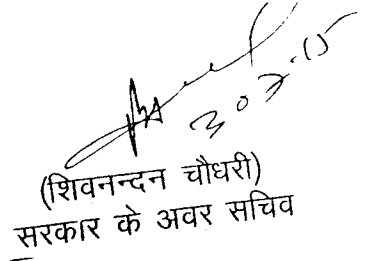 30.7.15
(शिवनन्दन चौधरी)
सरकार के अवर सचिव